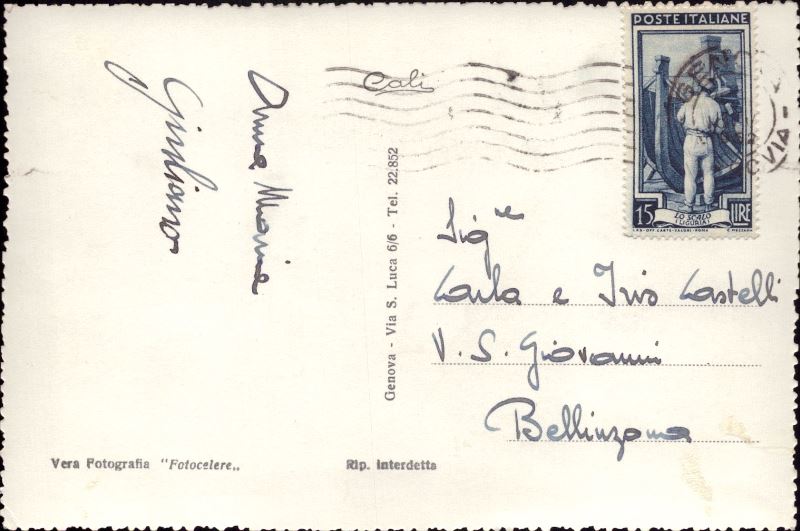 Anna Maria
Giuliano
Cali
POSTE ITALIANE
GEN
VIA
15 LIRE
LO SCALO
(LIGURIA)
I.P.S. OFF. CARTE-VALORI-ROMA
Genova - Via S. Luca 6/6 - Tel. 22.852
Sig.le
Carla e Iris Castelli
V. S. Giovanni
Bellinzona
Vera Fotografia "Fotocelere„
Rip. interdetta